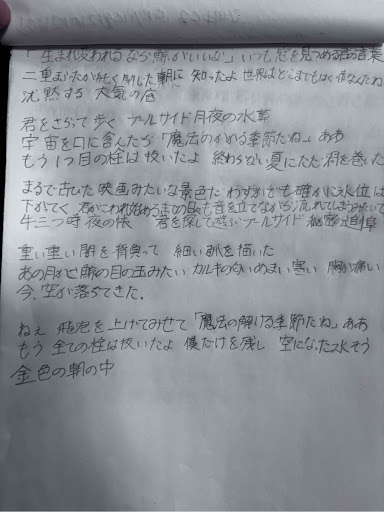 「生まれ変われるなら鯨がいいな」いつも窓を見つめる君の言葉
二重まぶたが重く閉した朝に 知ったよ 世界はどこまでも白く
沈黙する 大気の底
君をさらって歩く プールサイド月夜の水葬
宇宙を口に含んだら「魔法のかかる季節だね」ああ
もう1つ目の栓は抜いたよ 終わらない夏にただ渦を巻いた
まるで古びた映画みたいな景色だ わずかでも確かに水位は
下がってく 君がこわれ始めるまでの 音を立てながら流れてしまうみたいで
牛三つ時 夜の帳 君を探して惑ぶプールサイド 秘密の逍遥
重い重い闇を背負って 細い弧を描いた
あの月が 鯨の目の玉みたい カルキの匂い めまい 寒い 胸が痛い
今、空が落ちてきた.
ねぇ 飛沫を上げてみせて「魔法の解ける季節だね」ああ
もう 全ての栓は抜いたよ 僕だけを残し 空になった水そう
金色の朝の中